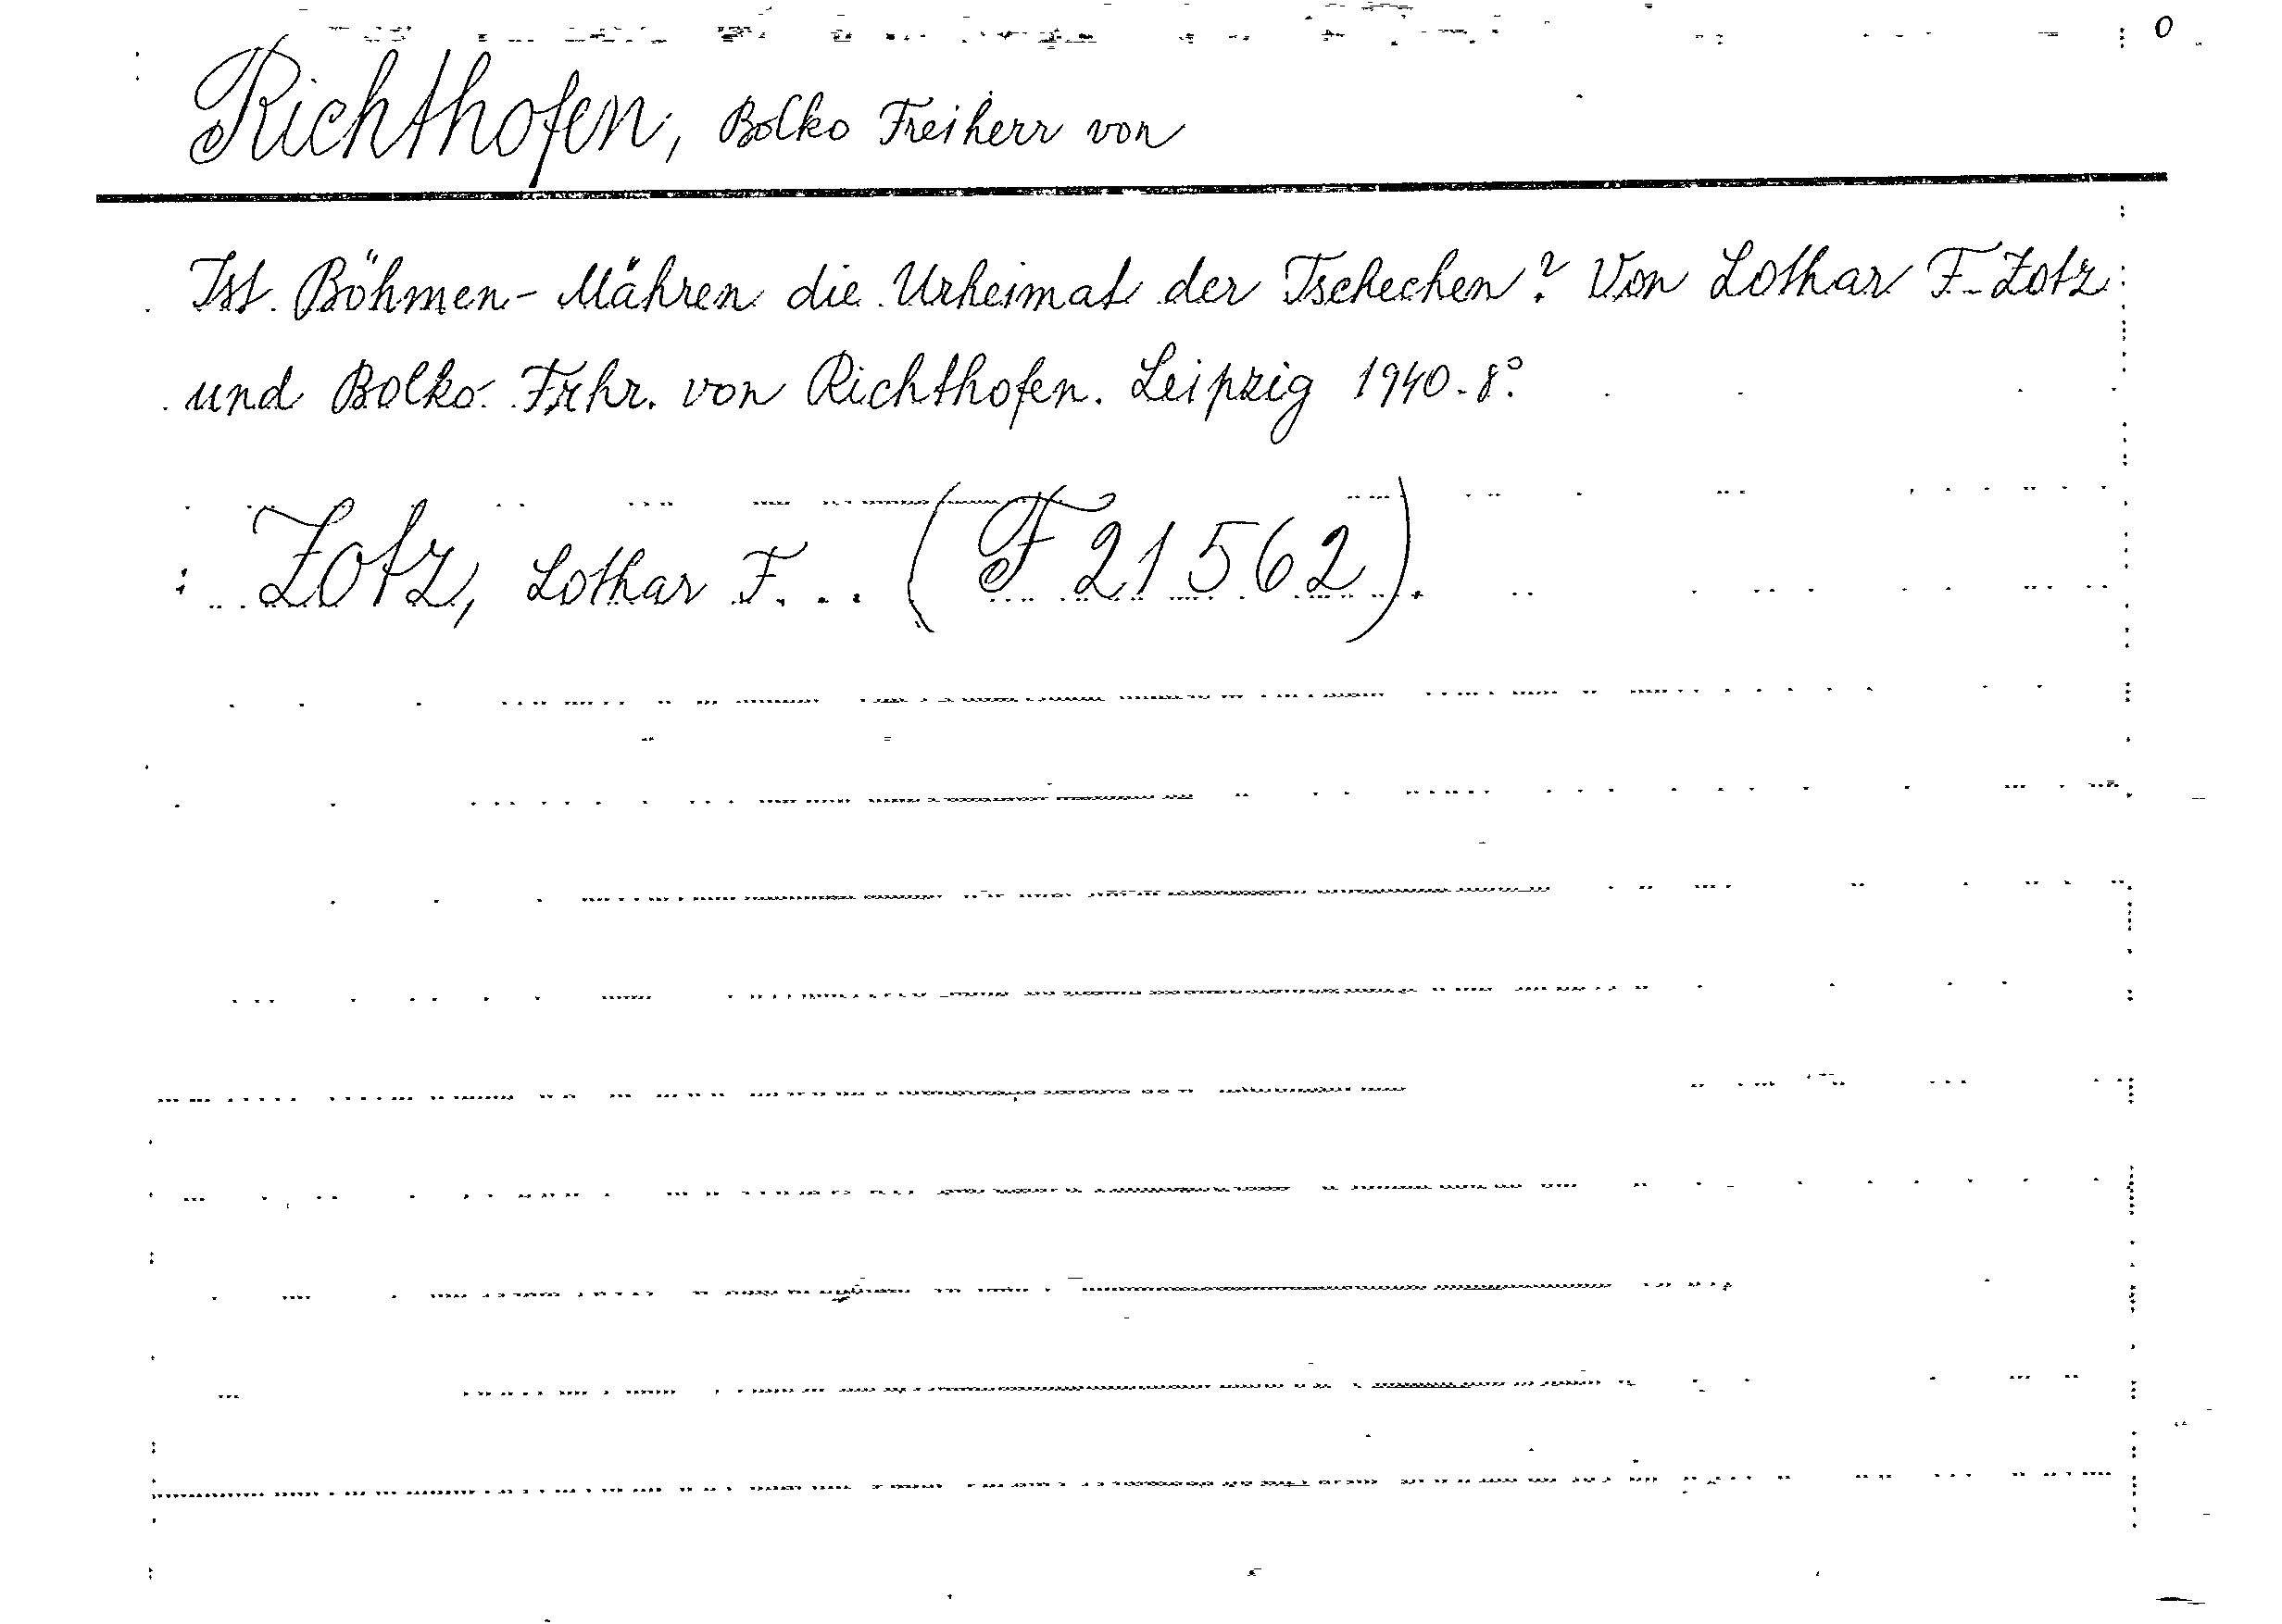 0
Richthofen, Bolko Freiherr von
Ist Böhmen-Mähren die Urheimat der Tschechen? Von Lothar F. Zotz
und Bolko Frhr. von Richthofen. Leipzig 1940. 8°.
Zotz, Lothar F... (F 21562).